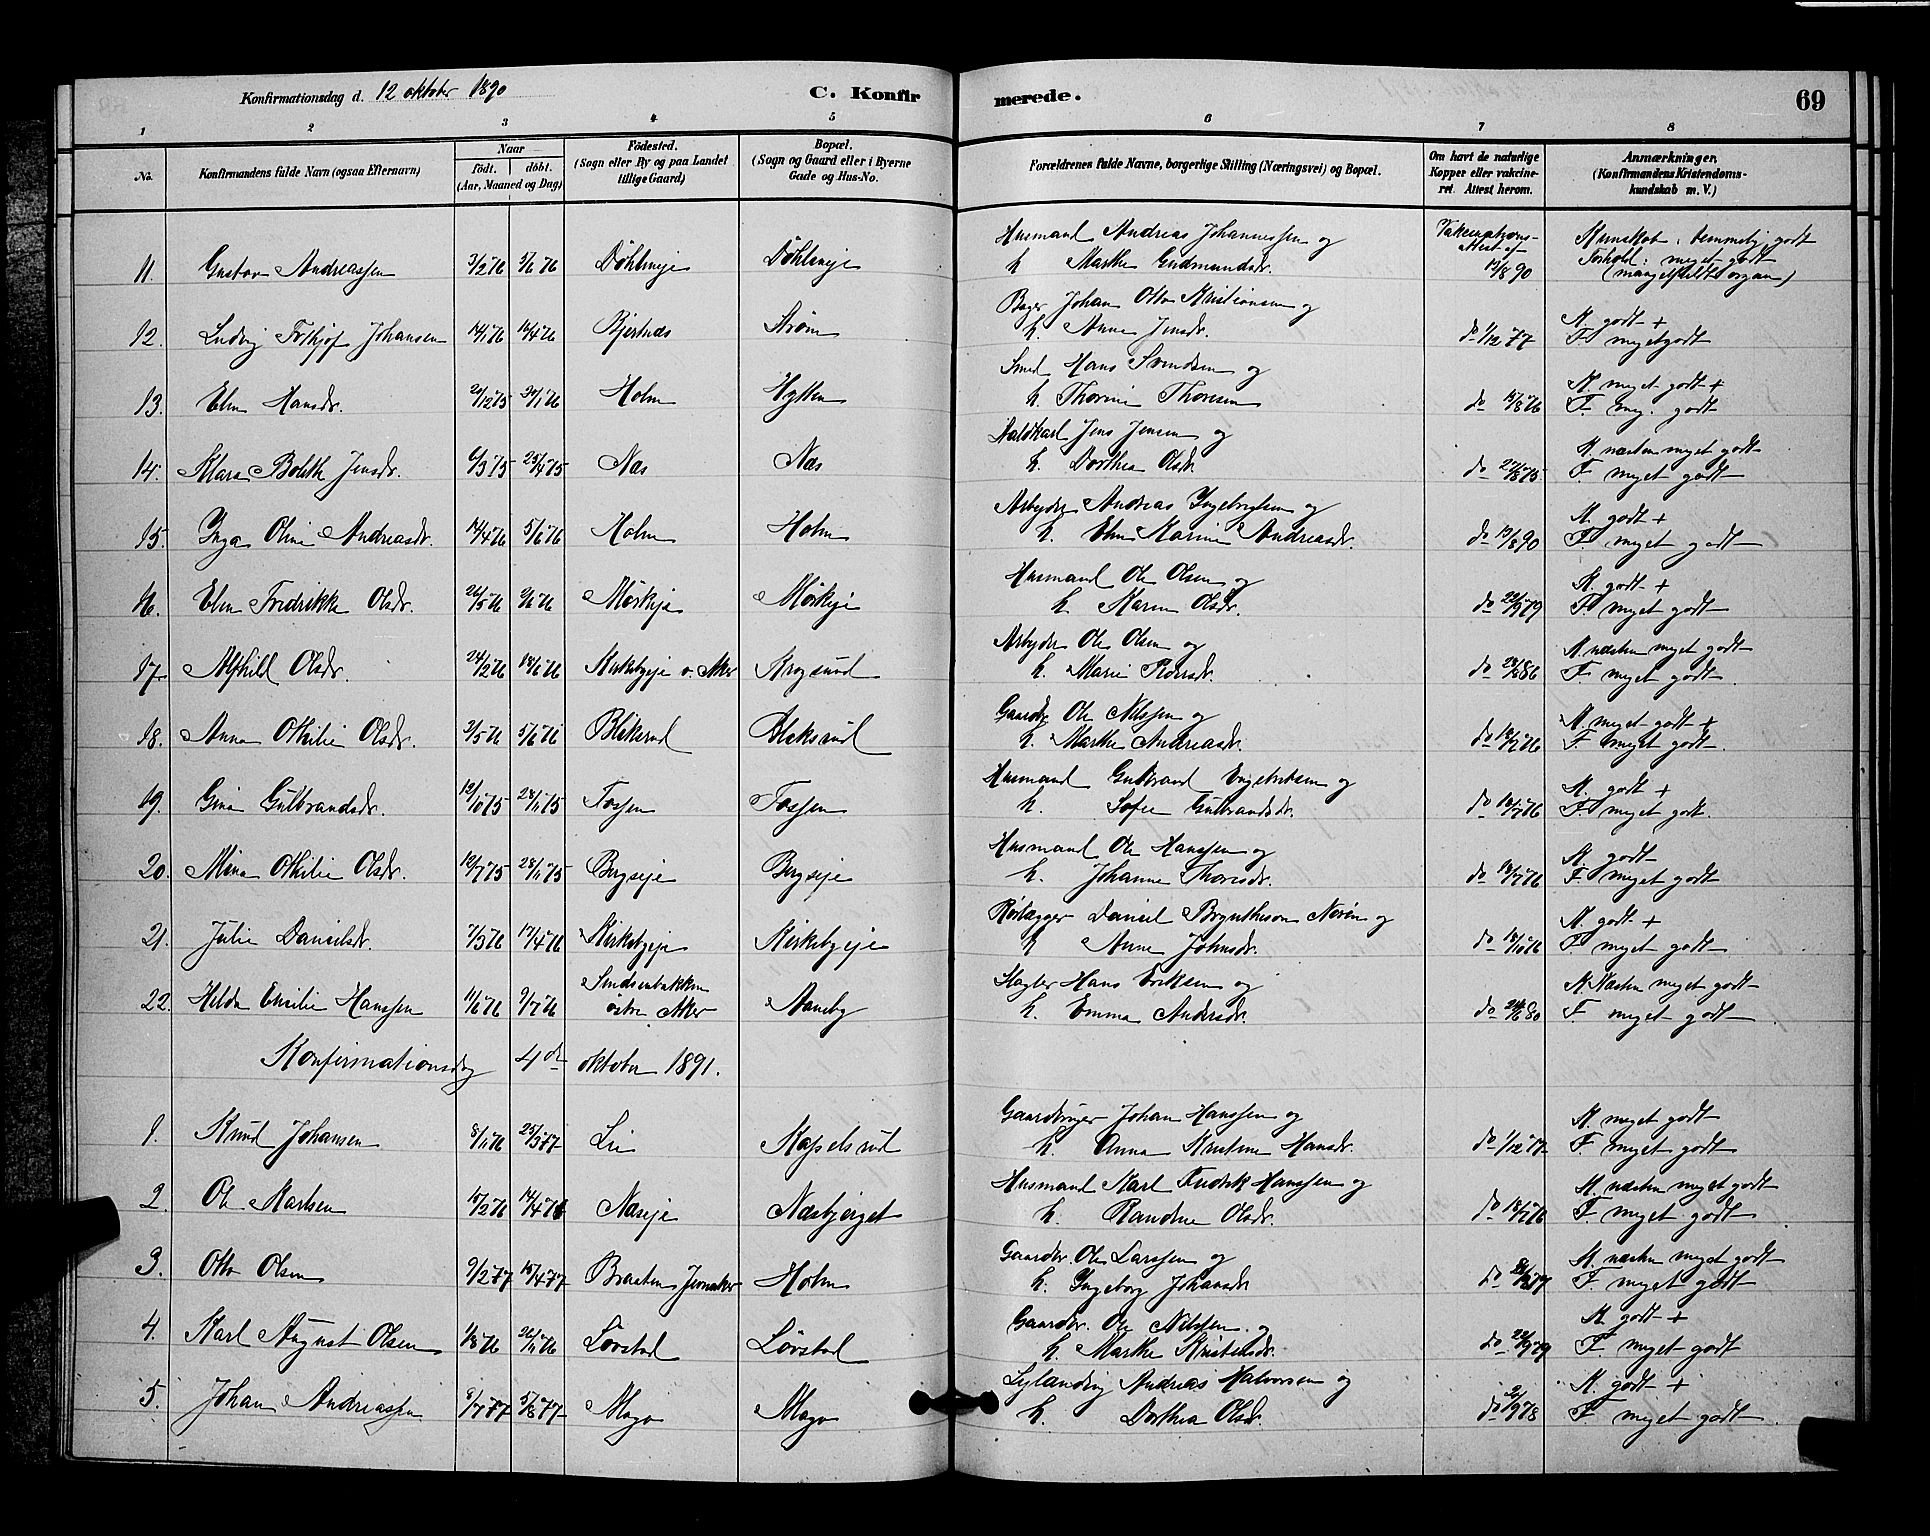 Konfirmationsdag d. 12 oktober 1890
C. Konfirmerede.
69
1 2 3 4 5 6 7 8
No. Konfirmandens fulde Navn (ogsaa Efternavn) Naar født. døbt. (Aar, Maaned og Dag) Fødested. (Sogn eller By og paa Landet tillige Gaard) Bopæl. (Sogn og Gaard eller i Byerne Gade og Hus-No. Forældrenes fulde Navne, borgerlige Stilling (Næringsvei) og Bopæl. Om havt de naturlige Kopper eller vakcineret. Attest herom. Anmærkninger. (Konfirmandens Kristendomskundskab m. V.)
11. Gustav Andreassen 3/2 76 5/6 76 Døhleneje Døhleneje Husmand Andreas Johannessen og
h. Marthe Gudmundsdr. 13/8 90 Kunskab: temmelig godt
Forhold: meget godt
12. Ludvig Fritjof Johansen 14/1 76 16/4 76 Bjertnæs Strøm Johan Otto Kristiansen og
h. Anne Jensdr. do 1/12 77 K. godt +
F. meget godt
13. Elen Hansdr. 20/12 75 30/1 76 Holm Hytten Smed Hans Svendsen og
h. Thorine Thoresen do 15/8 76 K. meget godt +
F. meg. godt
14. Klara Bolette Jensdr. 6/3 75 25/4 75 Næs Næs Jens Jensen og
h. Dorthea Olsdr. do 27/8 75 K. næsten meget godt
F. meget godt
15. Inga Oline Andreasdr. 14/4 76 5/6 76 Holm Holm Arbeyder Andreas Ingebrigtsen og
h. Elen Marine Andreasdr. do 13/8 90 K. godt +
F. meget godt
16. Elen Fredrikke Olsdr. 24/5 76 9/7 76 Mørkeje Mørkeje Husmand Ole Olsen og
h. Karen Olsdr. do 22/9 79 K. godt +
F. meget godt
17. Alfhild Olsdr. 24/2 76 18/6 76 Kirkebyeje v. Aker Krogsund Arbeyder Ole Olsen og
h. Marie do 28/8 86 K. næsten meget godt
F. meget godt
18. Anna Othilie Olsdr. 3/5 76 5/6 76 Bleksrud Bleksrud Gaardbr. Ole Nilssen og
h. Marthe Andreasdr. do 16/7 76 K. meget godt +
F. meget godt
19. Gina Gulbrandsdr. 12/10 75 28/11 75 Tossen Tossen Husmand Gulbrand Engebretsen og
h. Sofie Gulbrandsdr. do 16/7 76 K. godt +
F. meget godt.
20. Mina Othilie Olsdr. 19/7 75 28/11 75 Bergseje Bergseje Husmand Ole Hanssen og
h. Johanne Thoresdr. do 16/7 76 K. godt
F. meget godt
21. Julie Danielsdr. 7/3 76 17/4 76 Kirkebyeje Kirkebyeje Rørlægger Daniel Norén og
h. Anne Johnsdr. do 18/10 76 K. godt +
F. meget godt
22. Hilda Emilie Hanssen 11/6 76 9/7 76 østre Aker Aaneby Hans Eriksen og
h. Emma Andersdr. do 24/6 80 K. Næsten meget godt
F. meget godt
Konfirmationsdag 4de oktober 1891.
1. Knud Johansen 8/11 76 25/3 77 Lie Kapelsrud Gaardbruger Johan Hanssen og
h. Anna Kristine Hansdr. do 1/12 77 K. meget godt
F. meget godt
2. Ole Karlsen 15/2 76 14/4 76 Næseje Næsbjerget Husmand Karl Fredrik Hanssen og
h. Randine Olsdr. do 16/7 76 K. næsten meget godt
F. meget godt
3. Otto Olsen 9/2 77 15/4 77 Braaten Jevnaker Holm Gaardbr. Ole Larssen og
h. Ingeborg Johansdr. K. næsten meget godt
F. meget godt
4. Karl August Olsen 1/8 76 26/11 76 Løvstad Løvstad Gaardbr. Ole Nilssen og
h. Marthe Kristensdr. do 22/9 79 K. godt +
F. meget godt
5. Johan Andreassen 9/7 77 5/8 77 Mago Mago Andreas Halvorsen og
h. Dorthea Olsdr. do K. godt +
F. meget godt